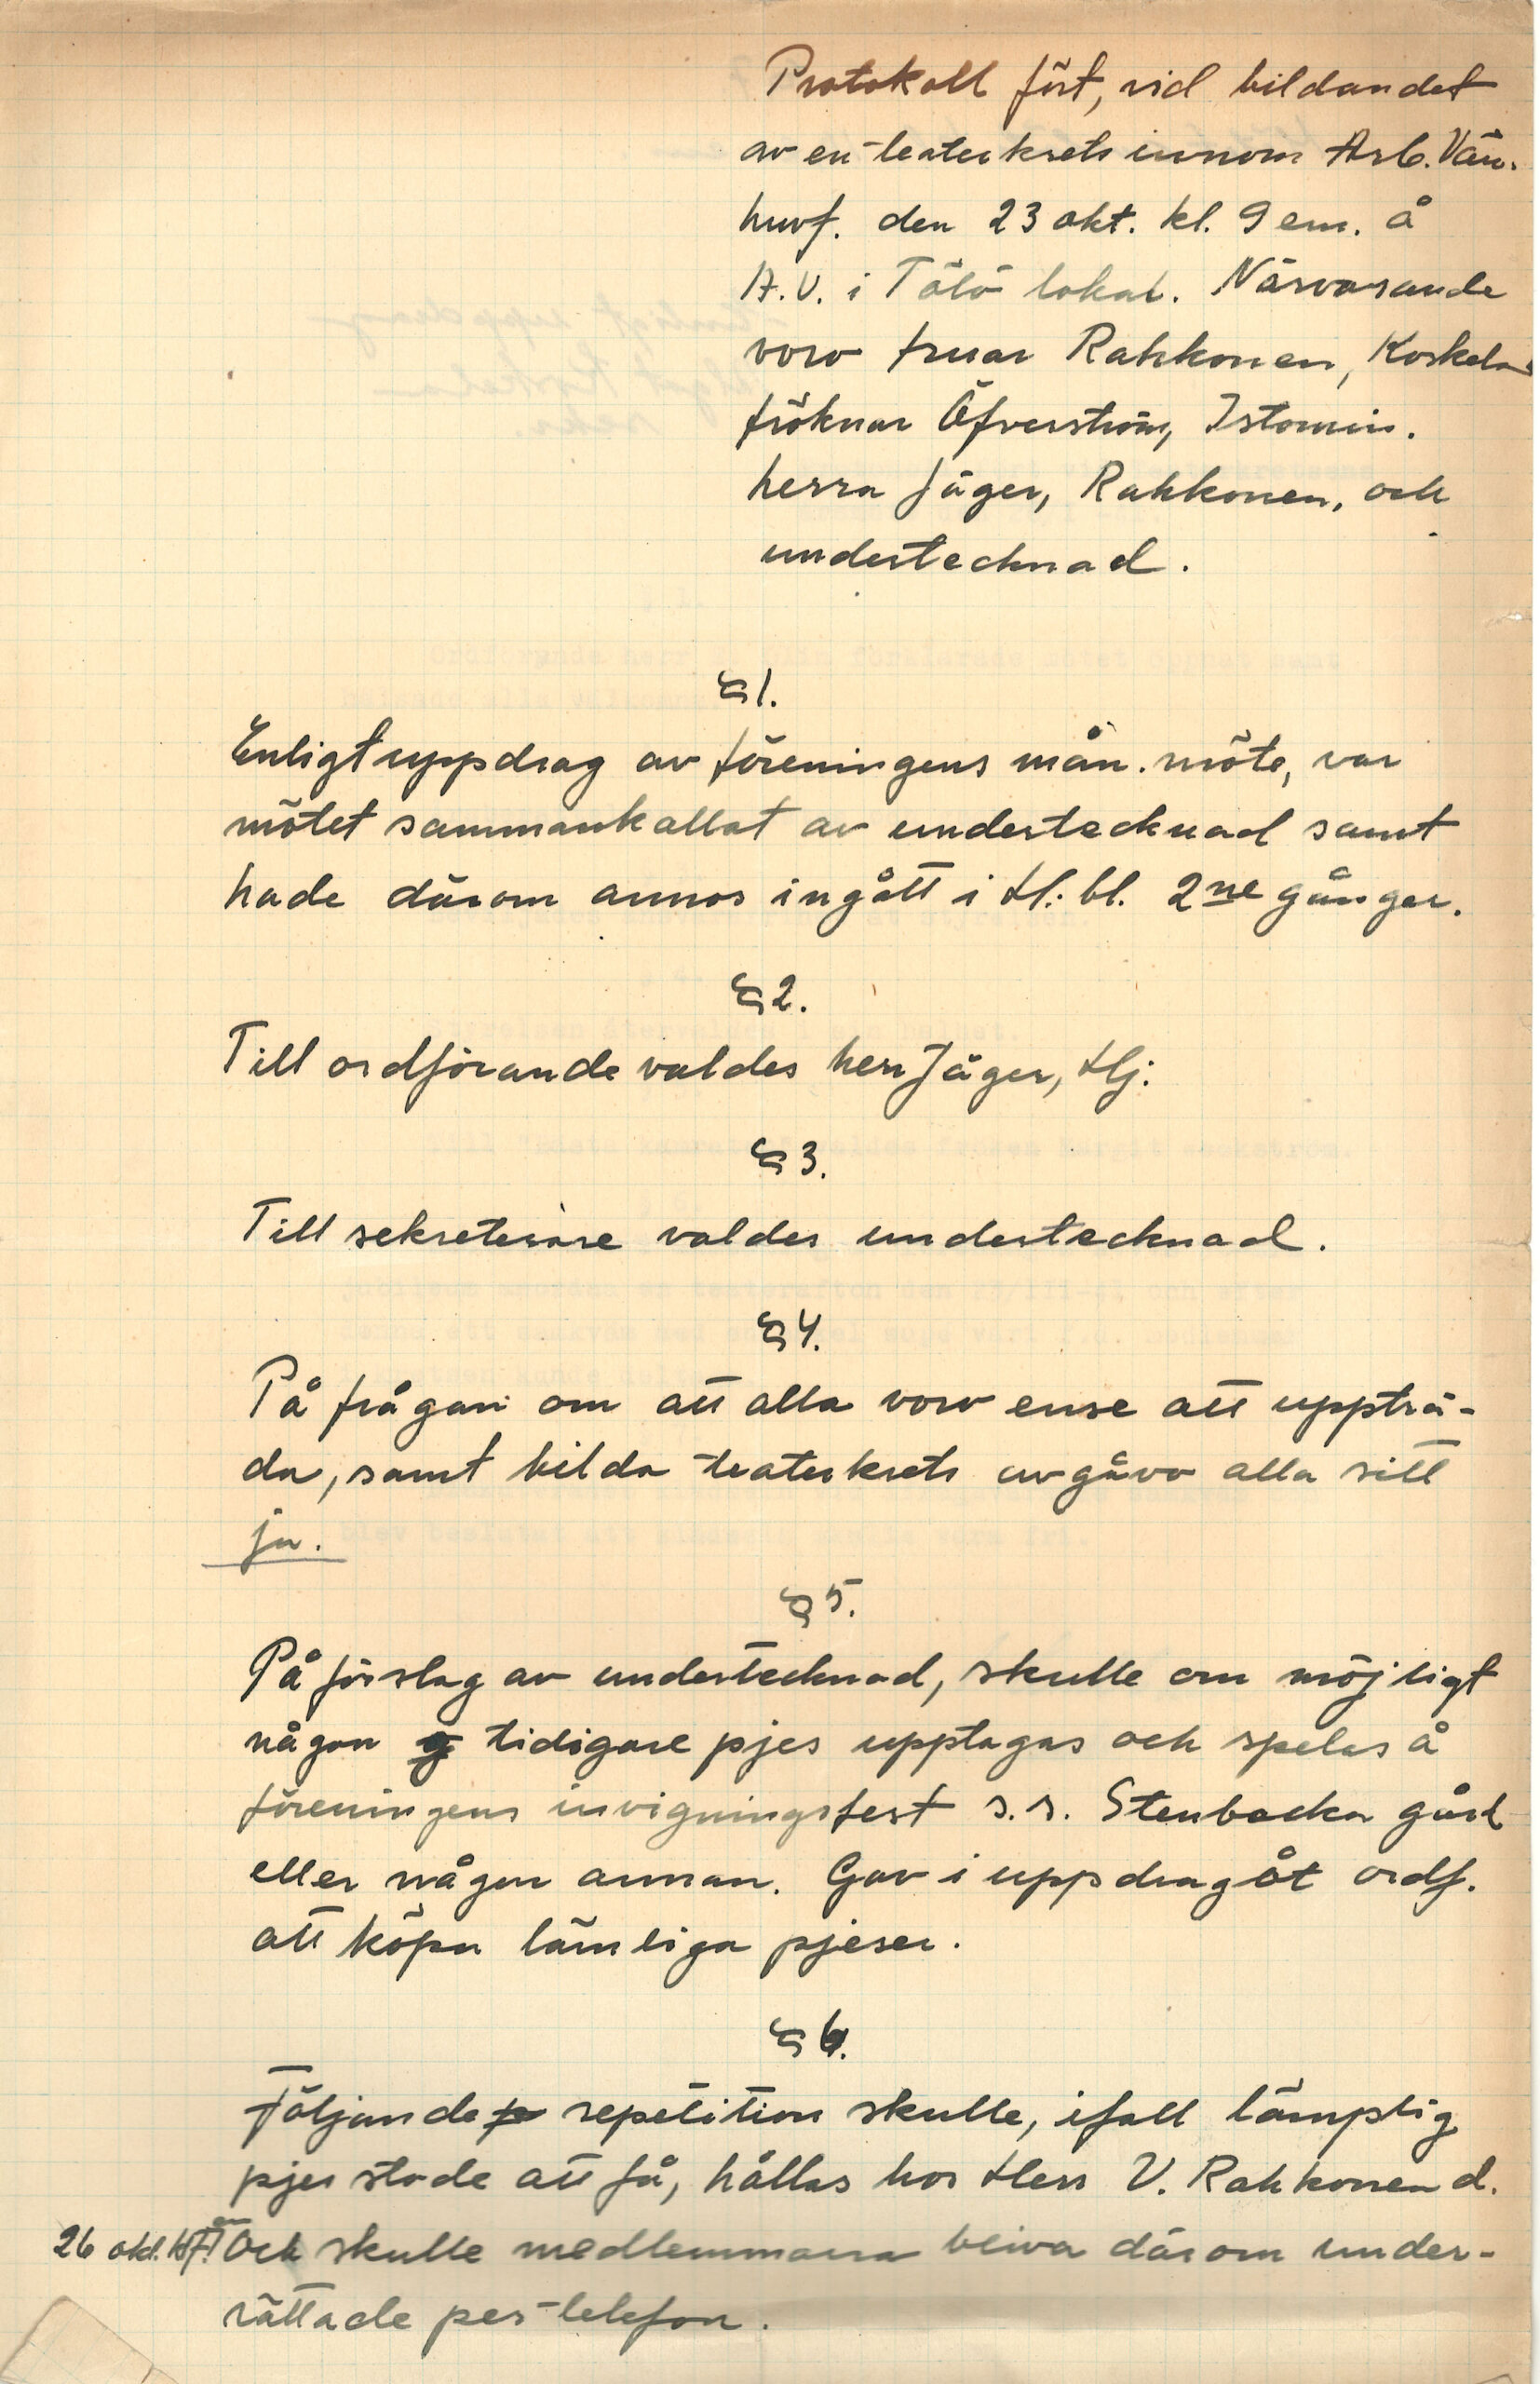 Protokoll fört, vid bildandet
av en teaterkrets innom Arb. Vän.
huvf. den 23 okt. kl. 9 em. å
A.V. i Tölö lokal. Närvarande
voro fruar Rahkonen, Koskela
fröknar Öfverström, Istomin.
herra Jäger, Rahkonen, och
undertecknad.
§1.
Enligt uppdrag av föreningens mån. möte, var
mötet sammankallat av undertecknad samt
hade därom annos ingått i H:bl. 2ne gånger.
§2.
Till ordförande valdes herr Jäger, Hj:
§3.
Till sekreterare valdes undertecknad.
§4.
På frågan om att alla voro ense att uppträ-
da, samt bilda teaterkrets avgåvo alla sitt
ja.
§5.
På förslag av undertecknad, skulle om möjligt
någon tidigare pjes upptagas och spelas å
föreningens invigningsfest s.s. Stenbacka gård
eller någon annan. Gav i uppdrag åt ordf.
att köpa lämliga pjeser.
§6.
Följande repetition skulle, ifall lämplig
pjes stode att få, hållas hos Herr V. Rahkonen d.
26 okt. kl 7. Och skulle medlemmarna bliva därom under-
rättade per telefon.